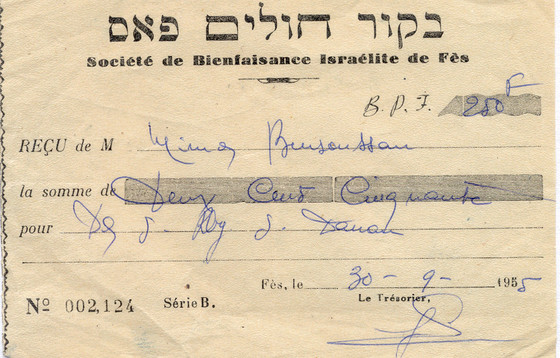 בקור חולים פאס
Société de Bienfaisance Israélite de Fès
B.P.F. 250F
REÇU de M Mimon Bensoussan
la somme de Deux Cent Cinquante
pour
Fès, le 30-9-1955
Le Trésorier,
Nº 002,124 Série B.